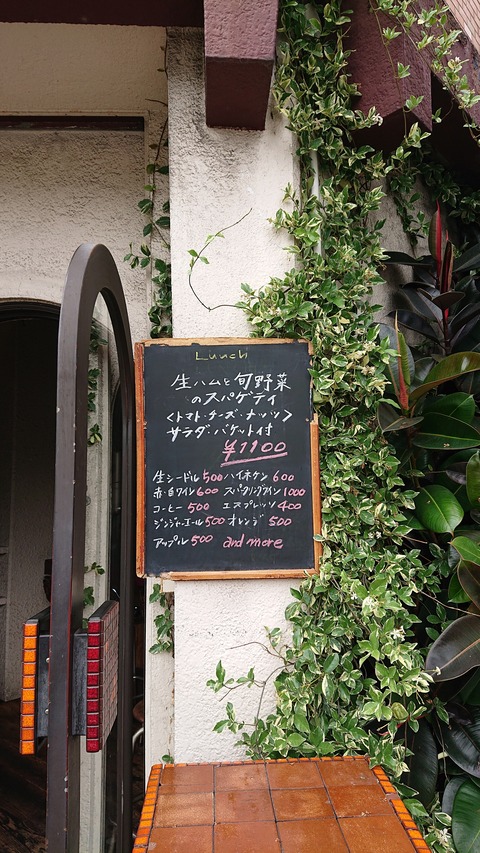 Lunch
生ハムと旬野菜
のスパゲティ
＜トマト・チーズ・ナッツ＞
サラダ・バゲット付
¥1100
生シードル500 ハイネケン 600
赤・白ワイン600 スパークリングワイン1000
コーヒー 500 エスプレッソ 400
ジンジャーエール500 オレンジ 500
アップル 500 and more